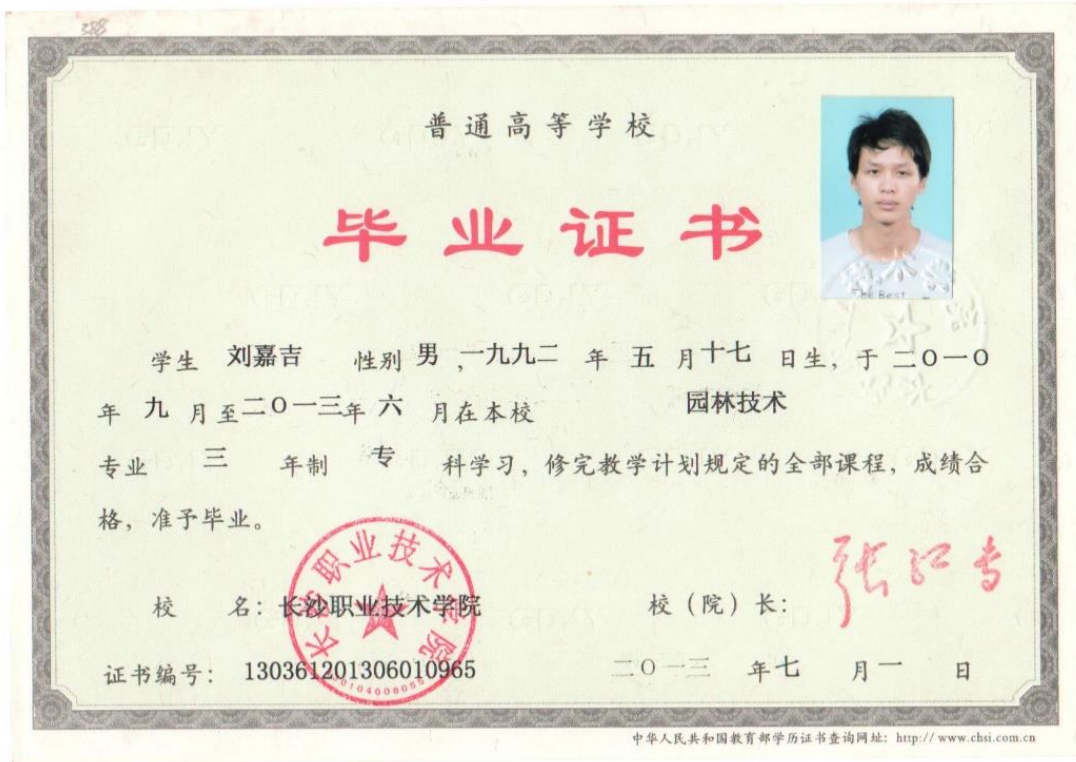 388
普通高等学校
毕业证书
学生 刘嘉吉 性别 男,一九九二 年 五 月十七 日生,于 二〇一〇
年 九 月至二〇一三年 六 月在本校 园林技术
专业 三 年制 专 科学习,修完教学计划规定的全部课程,成绩合
格,准予毕业。
长沙职业技术学院
校 名:长沙职业技术学院 校(院)长:
证书编号: 130361201306010965 二〇一三 年七 月一 日
中华人民共和国教育部学历证书查询网址: http://www.chsi.com.cn
The Best